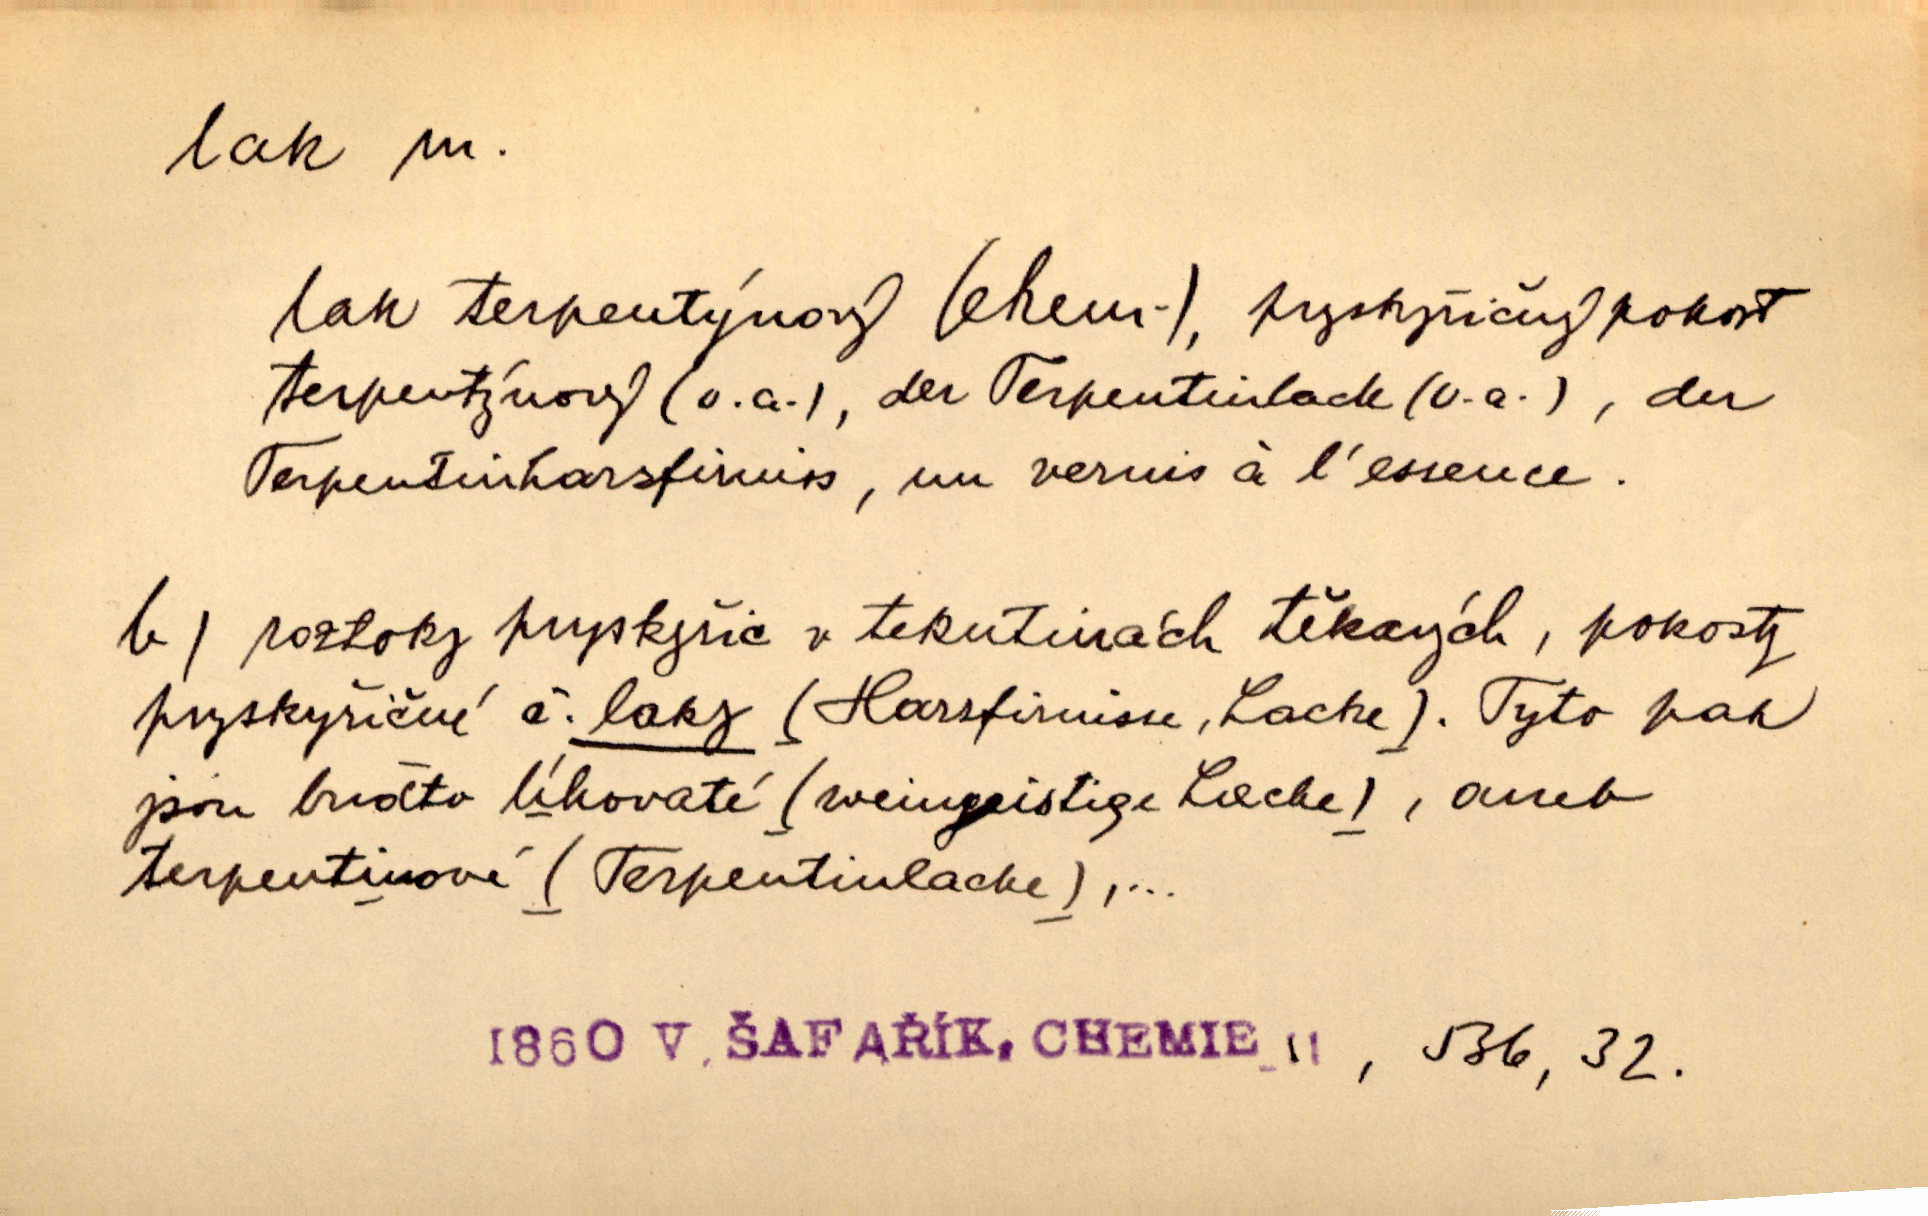 lak m.
lak terpentýnový (chem.), pryskyřičný pokost
terpentýnový (v.a.), der Terpentinlack (v.a.), der
Terpentinharzfirniss, un vernis à l'essence.
b) roztoky pryskyřic v tekutinách těkavých, pokosty
pryskyřičné č. laky (Harzfirnisse, Lacke). Tyto pak
jsou buďto líhovaté (weingeistige Lacke), aneb
terpentinové (Terpentinlacke),...
1860 V. ŠAFAŘÍK, CHEMIE II, 536, 32.